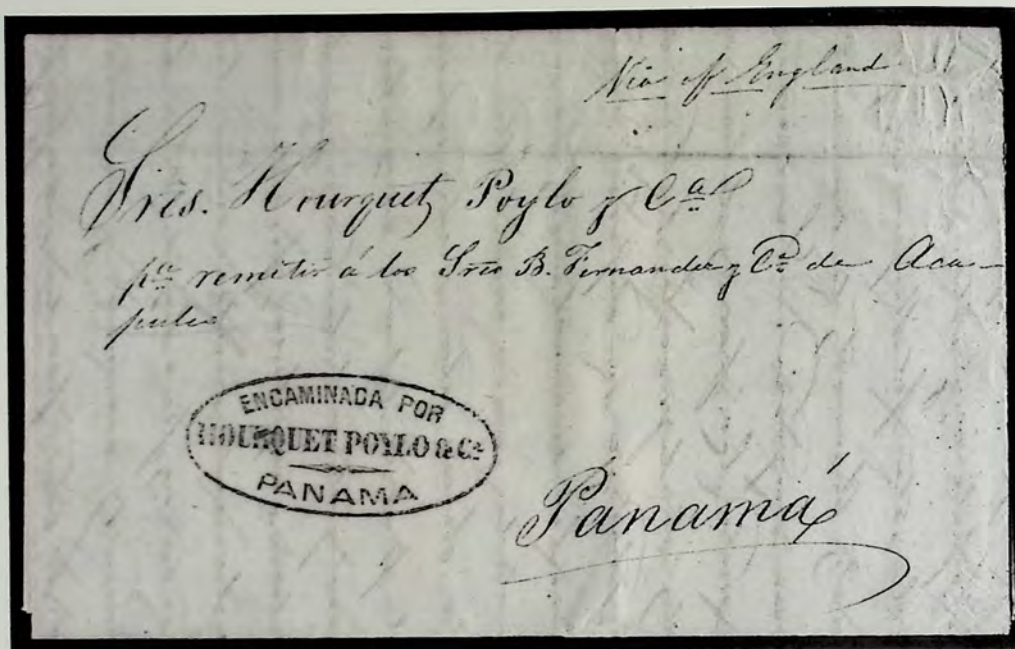 Via of England
Sres. Hourquet, Poylo y Cª
pª remitir á los Sres B. Fernandez y Cª de Aca-
pulco
ENCAMINADA POR
HOURQUET POYLO & Cª
PANAMA
Panamá